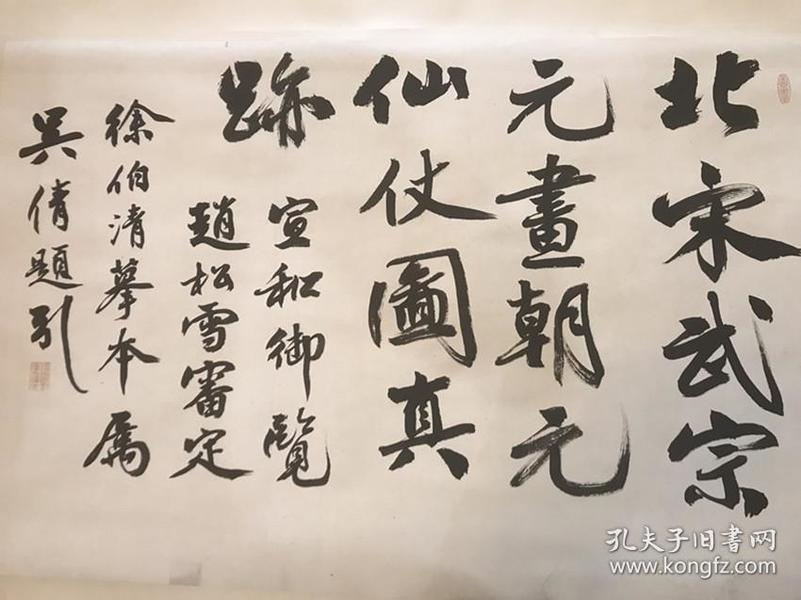 北宋武宗
元畫朝元
仙仗圖真
跡
宣和御覽
趙松雪審定
徐伯清摹本屬
吴倩題引
孔夫子旧书网
www.kongfz.com